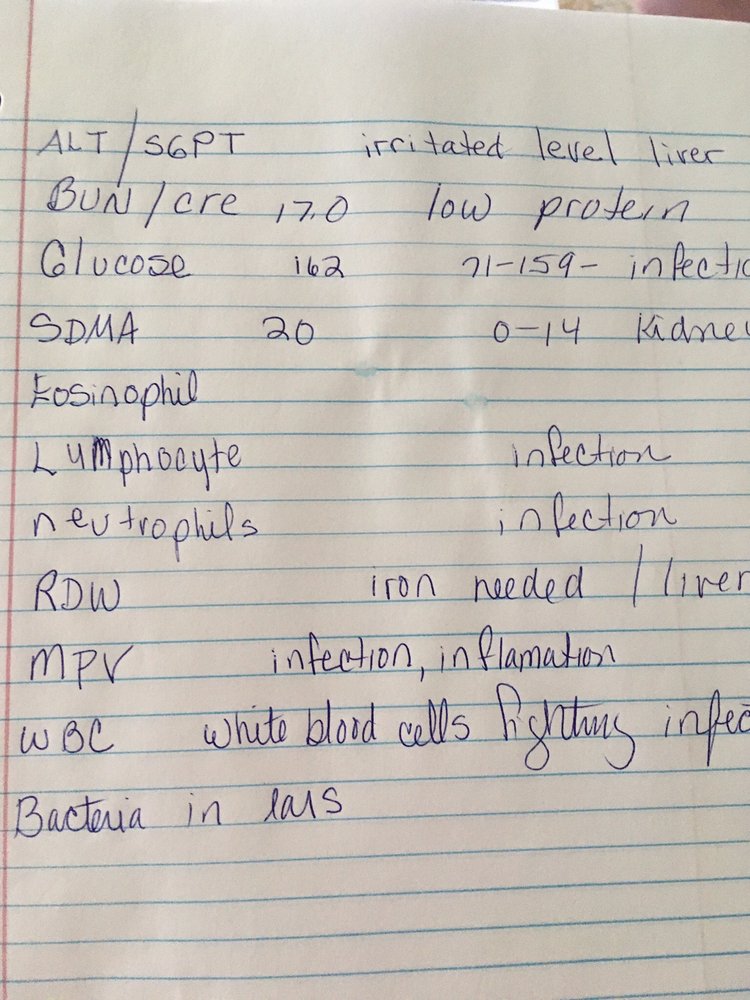 ALT/SGPT irritated level liver
BUN/cre 17.0 low protein
Glucose 162 71-159- infectio
SDMA 20 0-14 Kidne
Eosinophil
Lymphocyte infection
neutrophils infection
RDW iron needed / liver
MPV infection, inflamation
WBC white blood cells fighting infec
Bacteria in ears